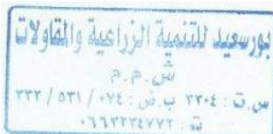 بورسعيد للتنمية الزراعية والمقاولات
ش.م.م
س.ت : ٢٣٠٤ ب.ض : ٠٧٤ / ٥٣١ / ٢٣٢
ت : ٠٦٦٣٢٣٤٧٧٢